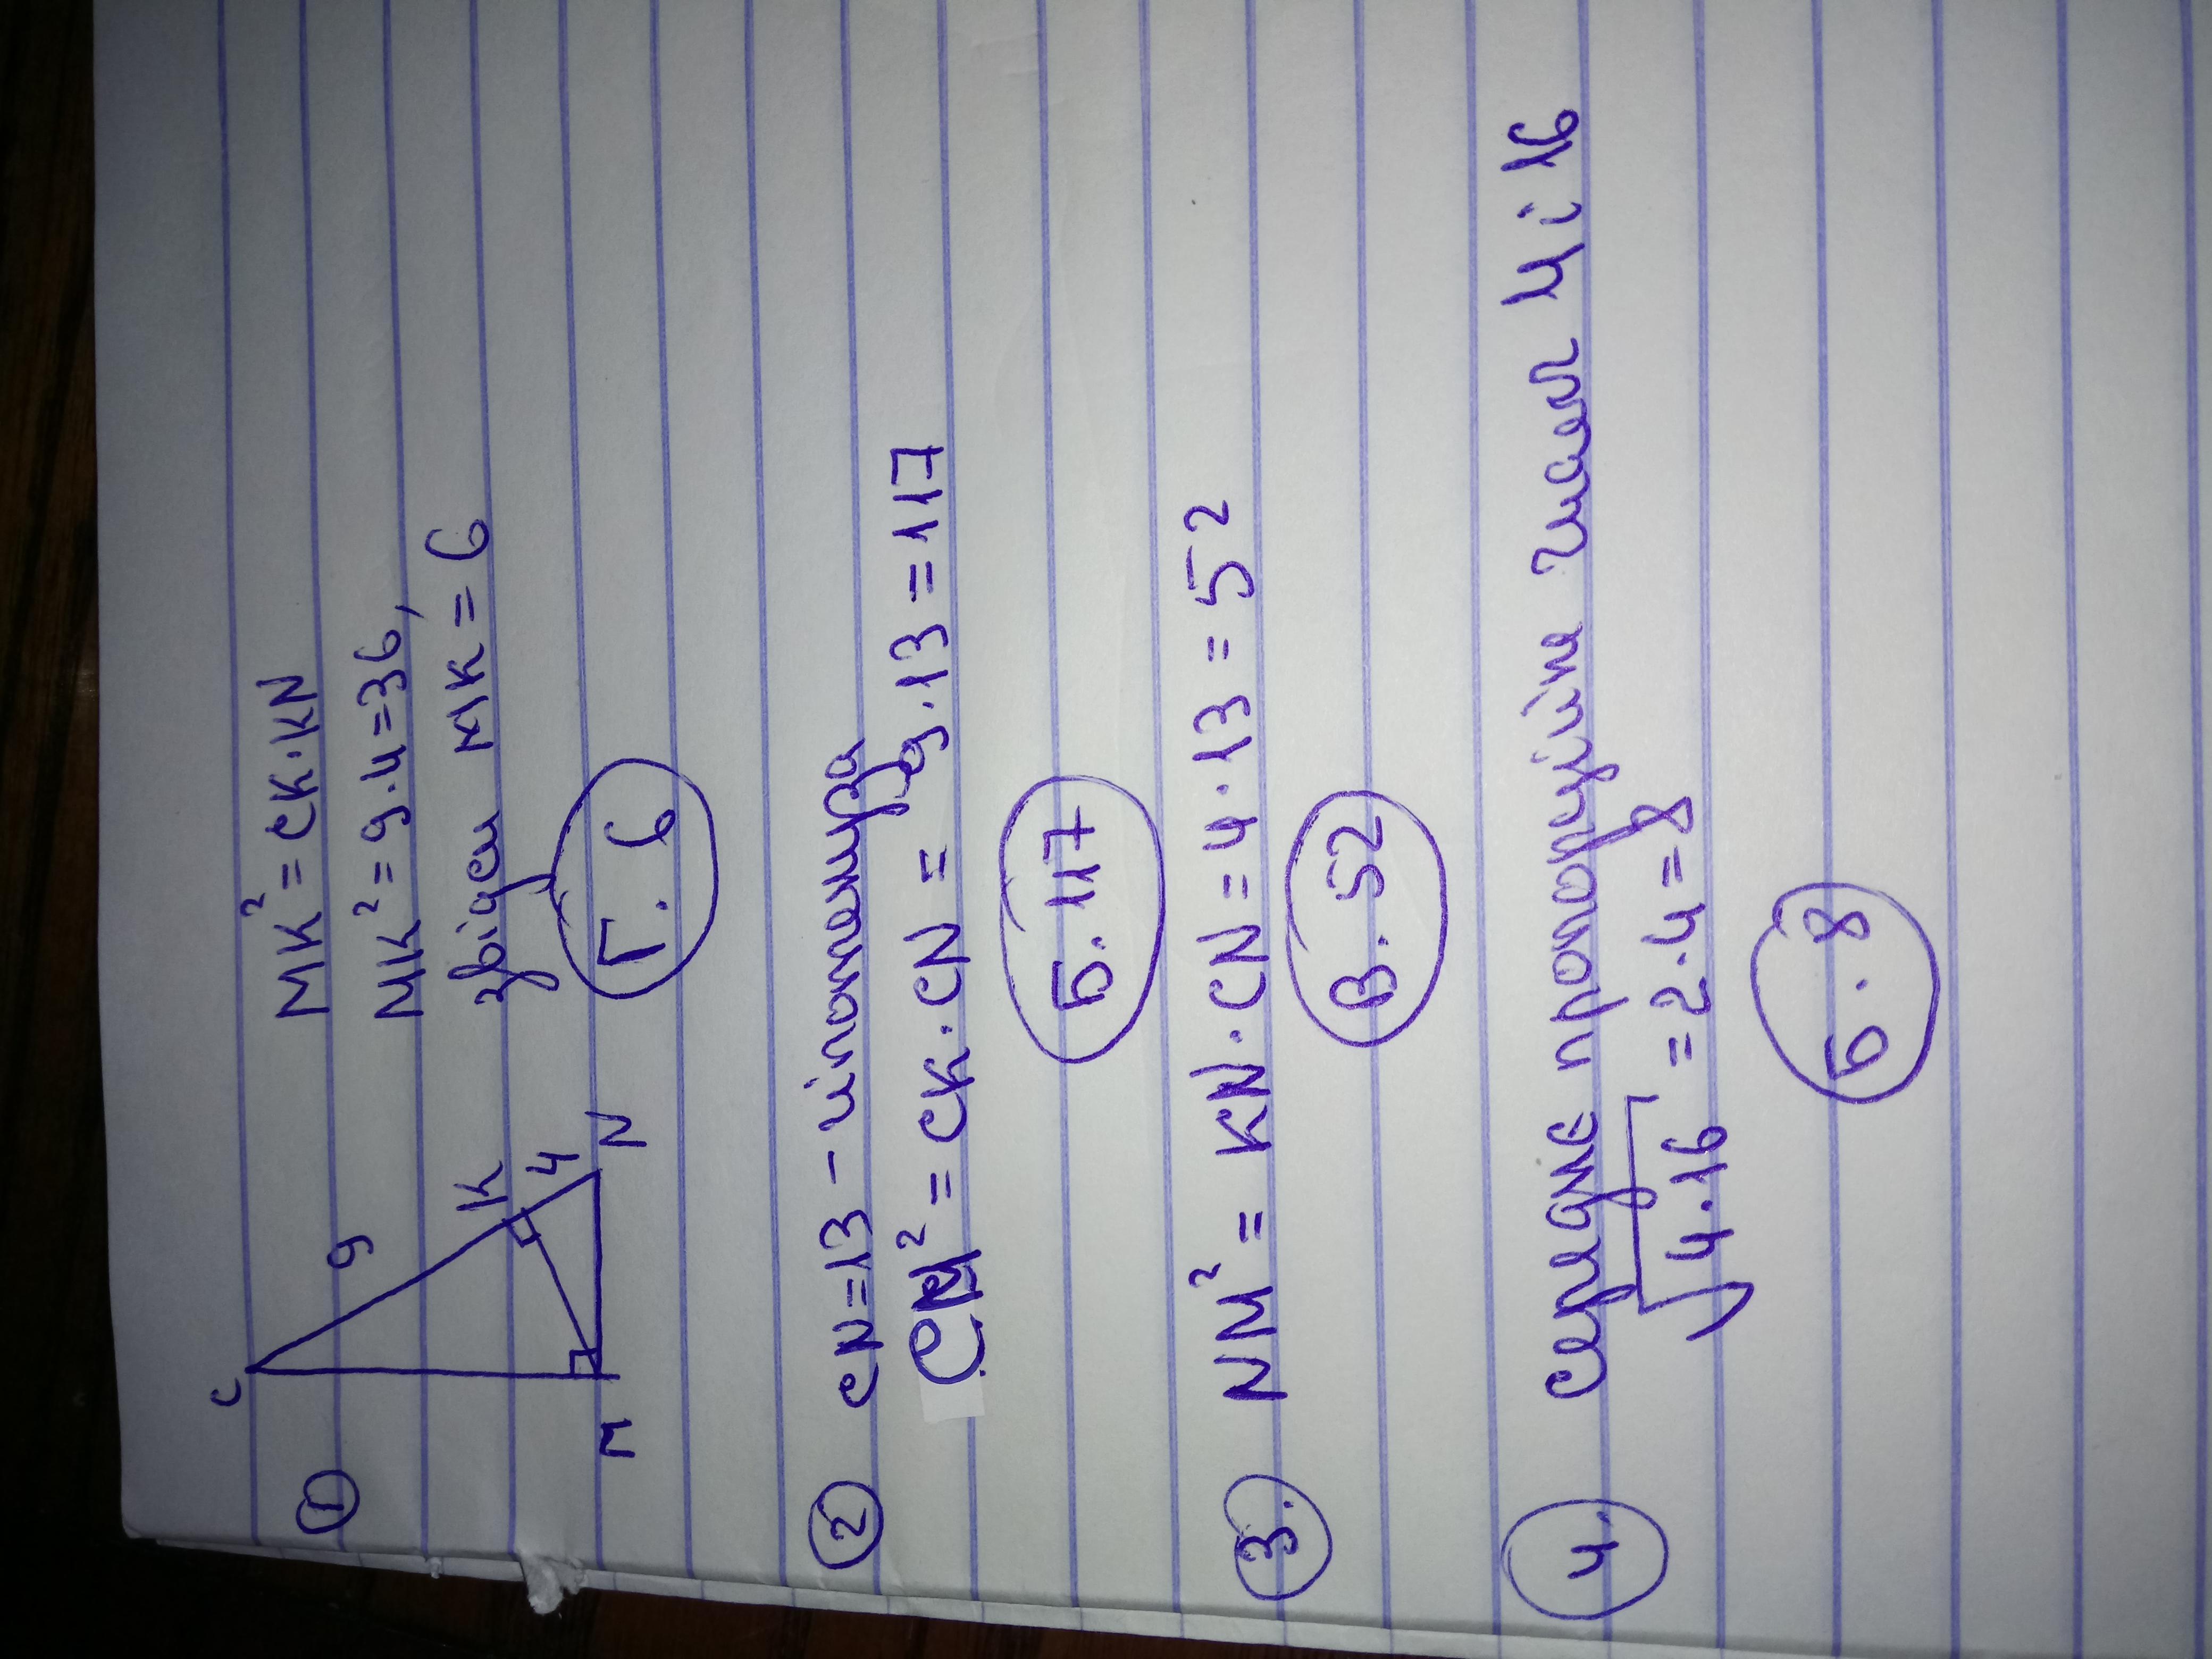 ①
C
9
K
4
M
N
MK² = CK·KN
MK² = 9·4=36,
звідси MK = 6
Г. 6
② CN=13 - гіпотенуза
CM² = CK·CN = 9·13 = 117
Б. 117
③. NM² = KN·CN = 4·13 = 52
В. 52
④. Середнє пропорційне чисел 4 і 16
√4·16 = 2·4=8
Б. 8